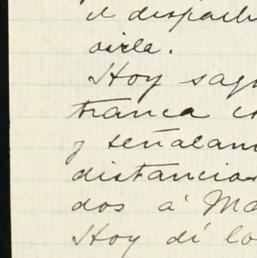 el despach
oirla.
Hoy sag
tranca c
y señalam
distancias
dos á Ma
Hoy dí lo